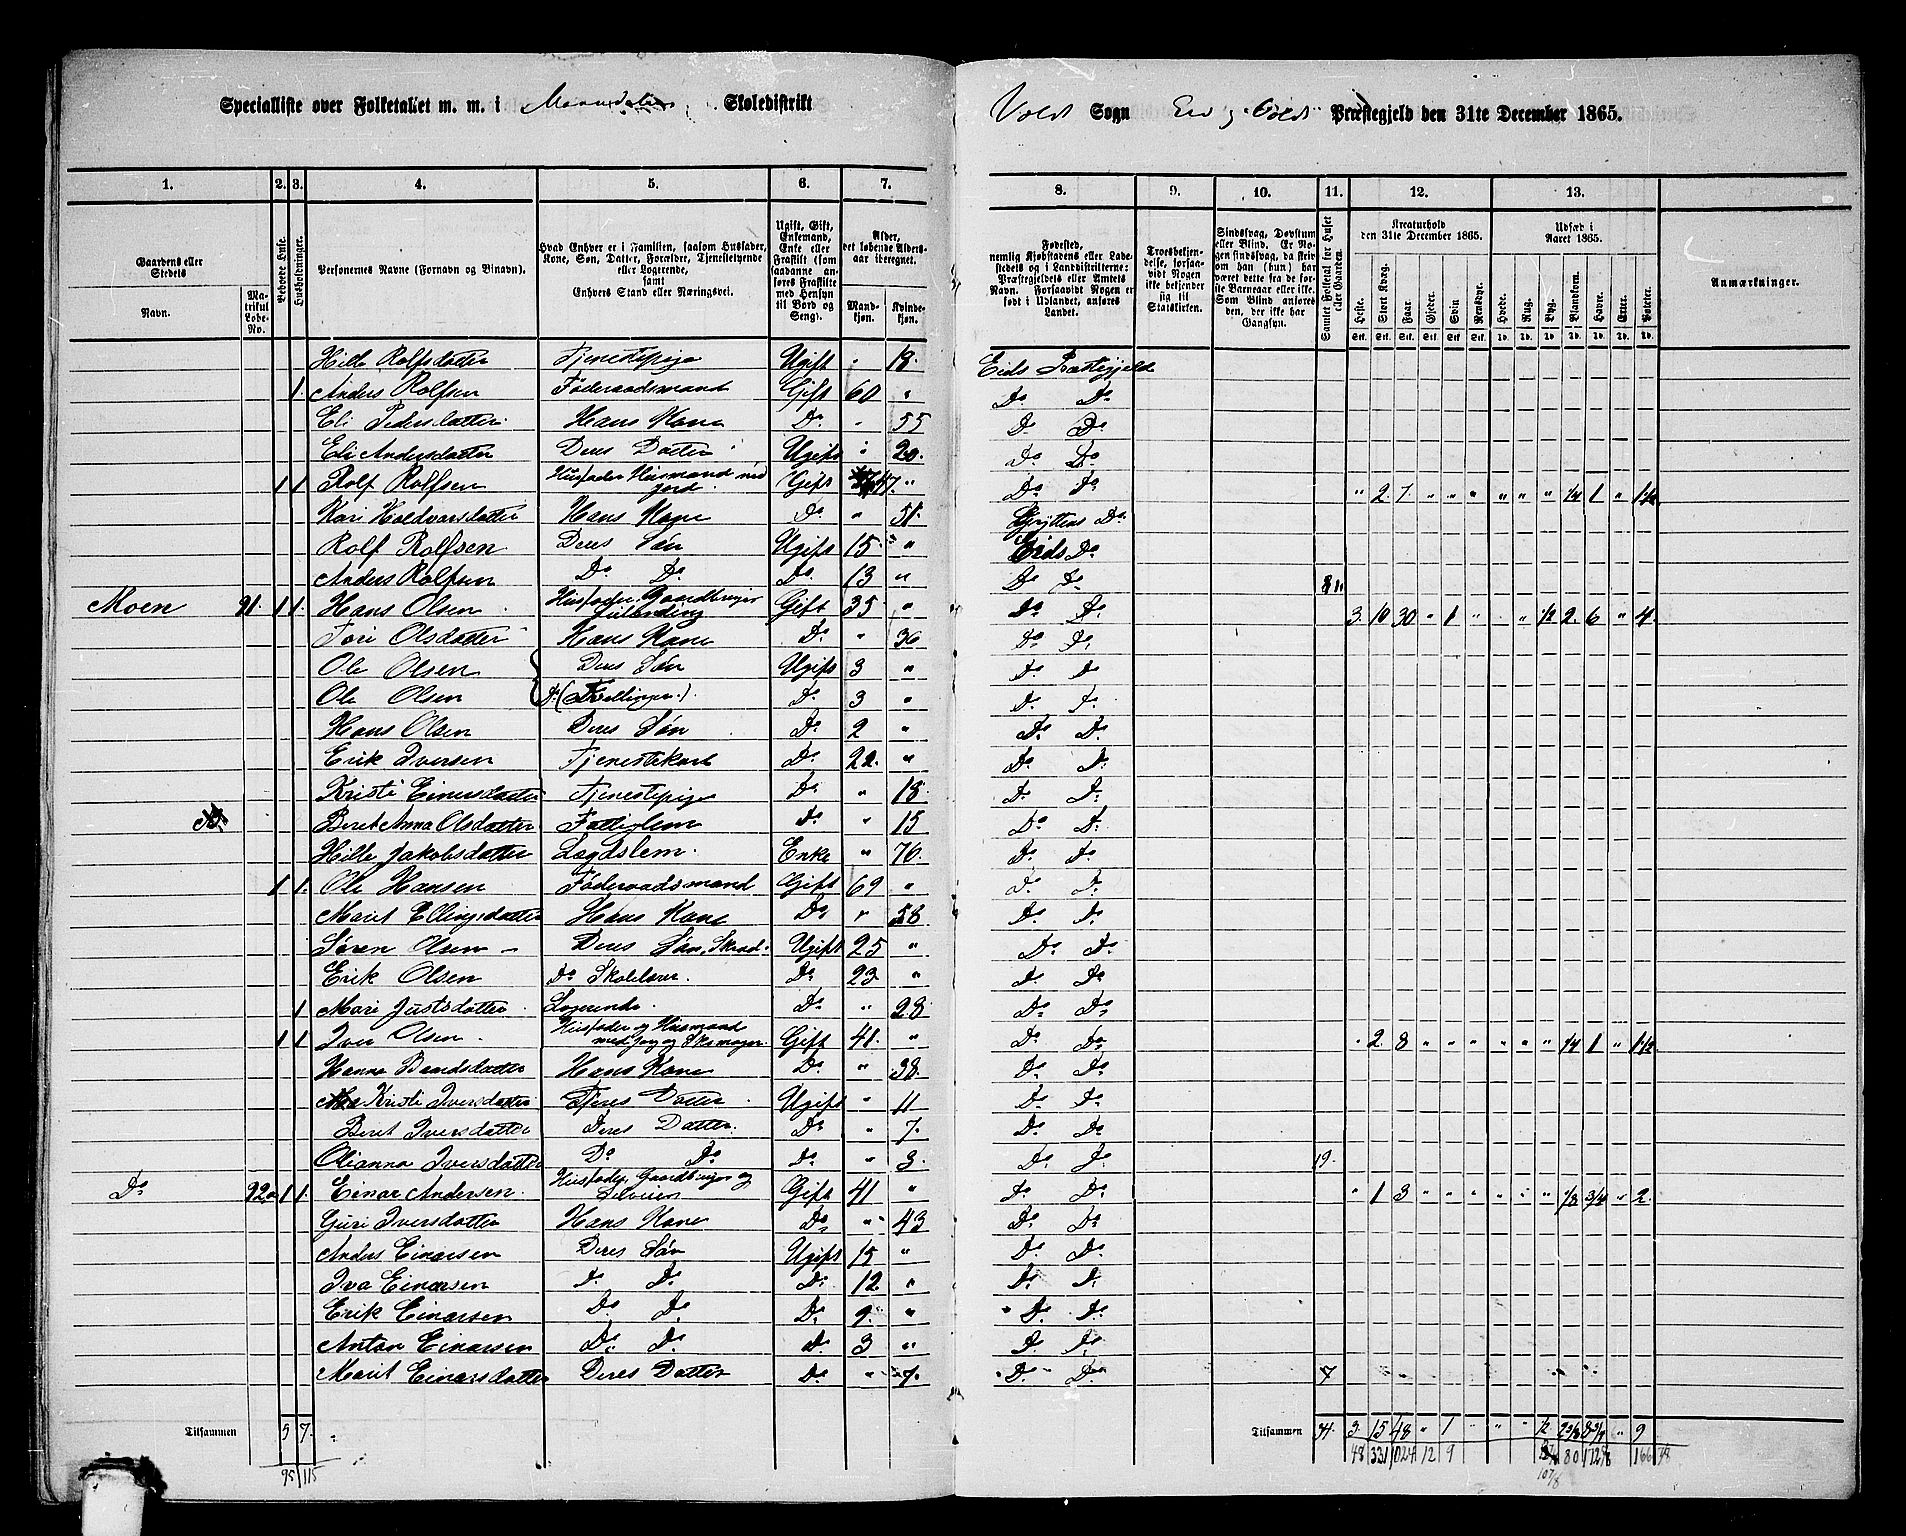 Specialliste over Folketallet m. m. i Maandalen Skoledistrikt
Voldt Sogn Eid og Voldt Præstegjeld den 31te December 1865.
1. 2. 3. 4. 5. 6. 7. 8. 9. 10. 11. 12. 13.
Gaardens eller Stedets
Navn.
Matrikul Løbe-No.
Beboede Huse.
Husholdninger.
Personernes Navne (Fornavn og Binavn).
Hvad Enhver er i Familien, saasom Husfader, Kone, Søn, Datter, Forældre, Tjenestetyende eller Logerende, samt Enhvers Stand eller Næringsvei.
Ugift, Gift, Enkemand, Enke eller Fraskilt (som saadanne anføres Fraskilte med Hensyn til Bord og Seng).
Alder, det løbende Alders-aar iberegnet.
Mandkjøn.
Kvindekjøn.
Fødested, nemlig Kjøbstadens eller Ladestedets og i Landdistrikterne: Præstegjeldets eller Amtets Navn. Forsaavidt Nogen er født i Udlandet, anføres Landet.
Troesbekjendelse, forsaavidt Nogen ikke bekjender sig til Statskirken.
Sindssvag, Døvstum eller Blind. Er Nogen sindssvag, da skrives om han (hun) har været dette fra de første Barneaar eller ikke. Som Blind anføres den, der ikke har Gangsyn.
Samlet Folketal for Huset eller Gaarden.
Kreaturhold den 31te December 1865.
Heste. Stort Kvæg. Faar. Gjeder. Svin. Rensdyr.
Udsæd i Aaret 1865.
Hvede. Rug. Byg. Blandkorn. Havre. Erter. Poteter.
Anmærkninger.
Hille Rolfsdatter Tjenestepige Ugift " 18. Eids Præstegjeld
1. Anders Rolfsen Føderaadsmand Gift 60 " Do Do
Eli Pedersdatter Hans Kone Do " 55 Do Do
Eli Andersdatter Deres Datter Ugift " 20. Do Do
1 1 Rolf Rolfsen Husfader Husmand med Jord. Gift 47. " Do Do " 2. 7. " " " " " " 1/4 1 " 1 1/2
Kari Holdvarsdatter Hans Kone Do " 51. Gryttens Do
Rolf Rolfsen Deres Søn Ugift 15 " Eids Do
Anders Rolfsen Do Do Do. 13 " Do Do 8
Moen 91. 1 1 Hans Olsen Husfader, Gaardbruger Gift 35 " Do Do 3. 10 30 " 1 " " " 1/2 2. 6 " 4.
Hans Kone Do " 36 Do Do
Ole Olsen Deres Søn Ugift 3 " Do Do
Ole Olsen Do (Tvillinger.) Do 3 " Do Do
Hans Olsen Deres Søn Do 2 " Do Do
Erik Iversen Tjenestekarl Do 22. " Do Do
Kristi Einersdatter Tjenestepige Do " 18 Do Do
Beret Anna Olsdatter Fattiglem Do " 15 Do Do
Hille Jakobsdatter Lægdslem. Enke " 76. Do Do
1 1. Ole Hansen Føderaadsmand Gift 69 " Do Do
Marit Ellingsdatter Hans Kone Do " 58 Do Do
Søren Olsen Deres Søn, Ugift 25 " Do Do
Erik Olsen Do Skolelærer. Do 23. " Do Do
1 Mari Justsdatter Logerende. Do " 28 Do Do
1 1 Iver Olsen Husfader og Husmand med Jord og Skomager. Gift 41. " Do Do " 2. 8 " " " " " " 1/4 1 " 1 1/2
Hanna Hans Kone Do " 38. Do Do
Kristi Iversdatter Deres Datter Ugift " 11 Do Do
Beret Iversdatter Deres Datter. Do " 7. Do Do
Olianna Iversdatter Do Do Do " 3. Do Do 19.
Do 92a 1 1. Einar Andersen Husfader, Gaardbruger og Selveier Gift 41 " Do Do " 1 3 " " " " " " 7/8 3/4 " 2.
Guri Iversdatter Hans Kone Do " 43 Do Do
Anders Einarsen Deres Søn Ugift 15 " Do Do
Iva Einarsen Do Do Do 12. " Do Do
Erik Einarsen Do Do Do 9. " Do Do
Anton Einarsen Do Do Do 3 " Do Do
Marit Einarsdatter Deres Datter Do " 7. Do Do 7
Tilsammen 5 7. Tilsammen 34. 3. 15 48 " 1 " " " 1/2 " 9
95 115 48 331 1024 12 9 80 166